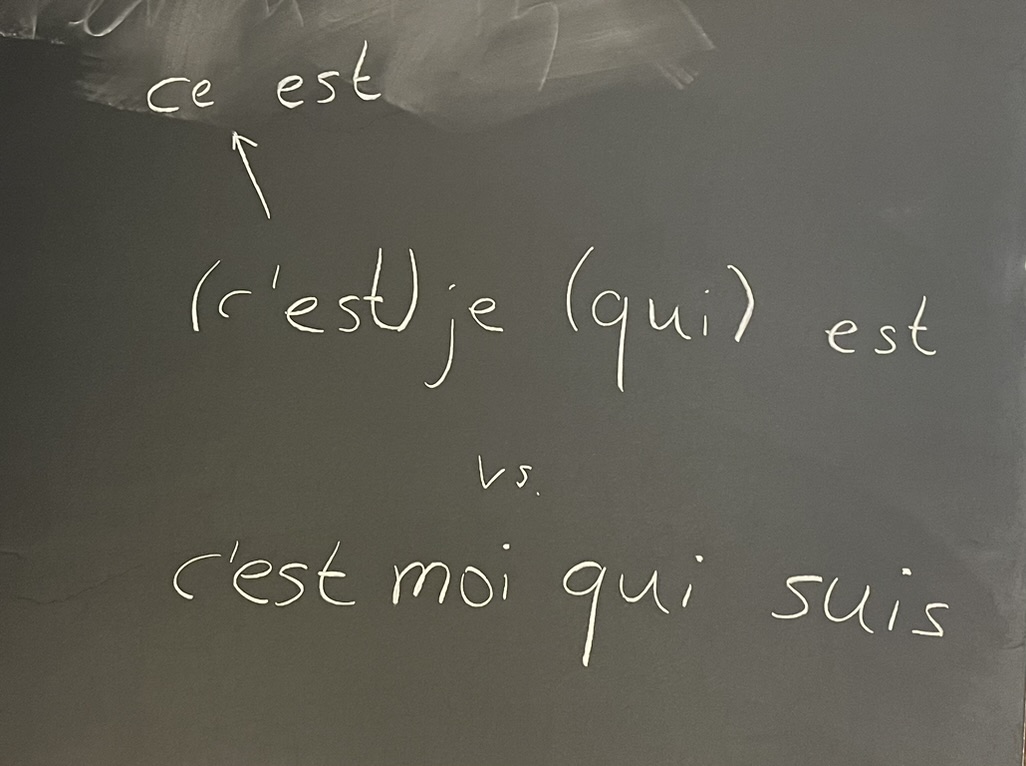 ce est
(c'est) je (qui) est
vs.
c'est moi qui suis